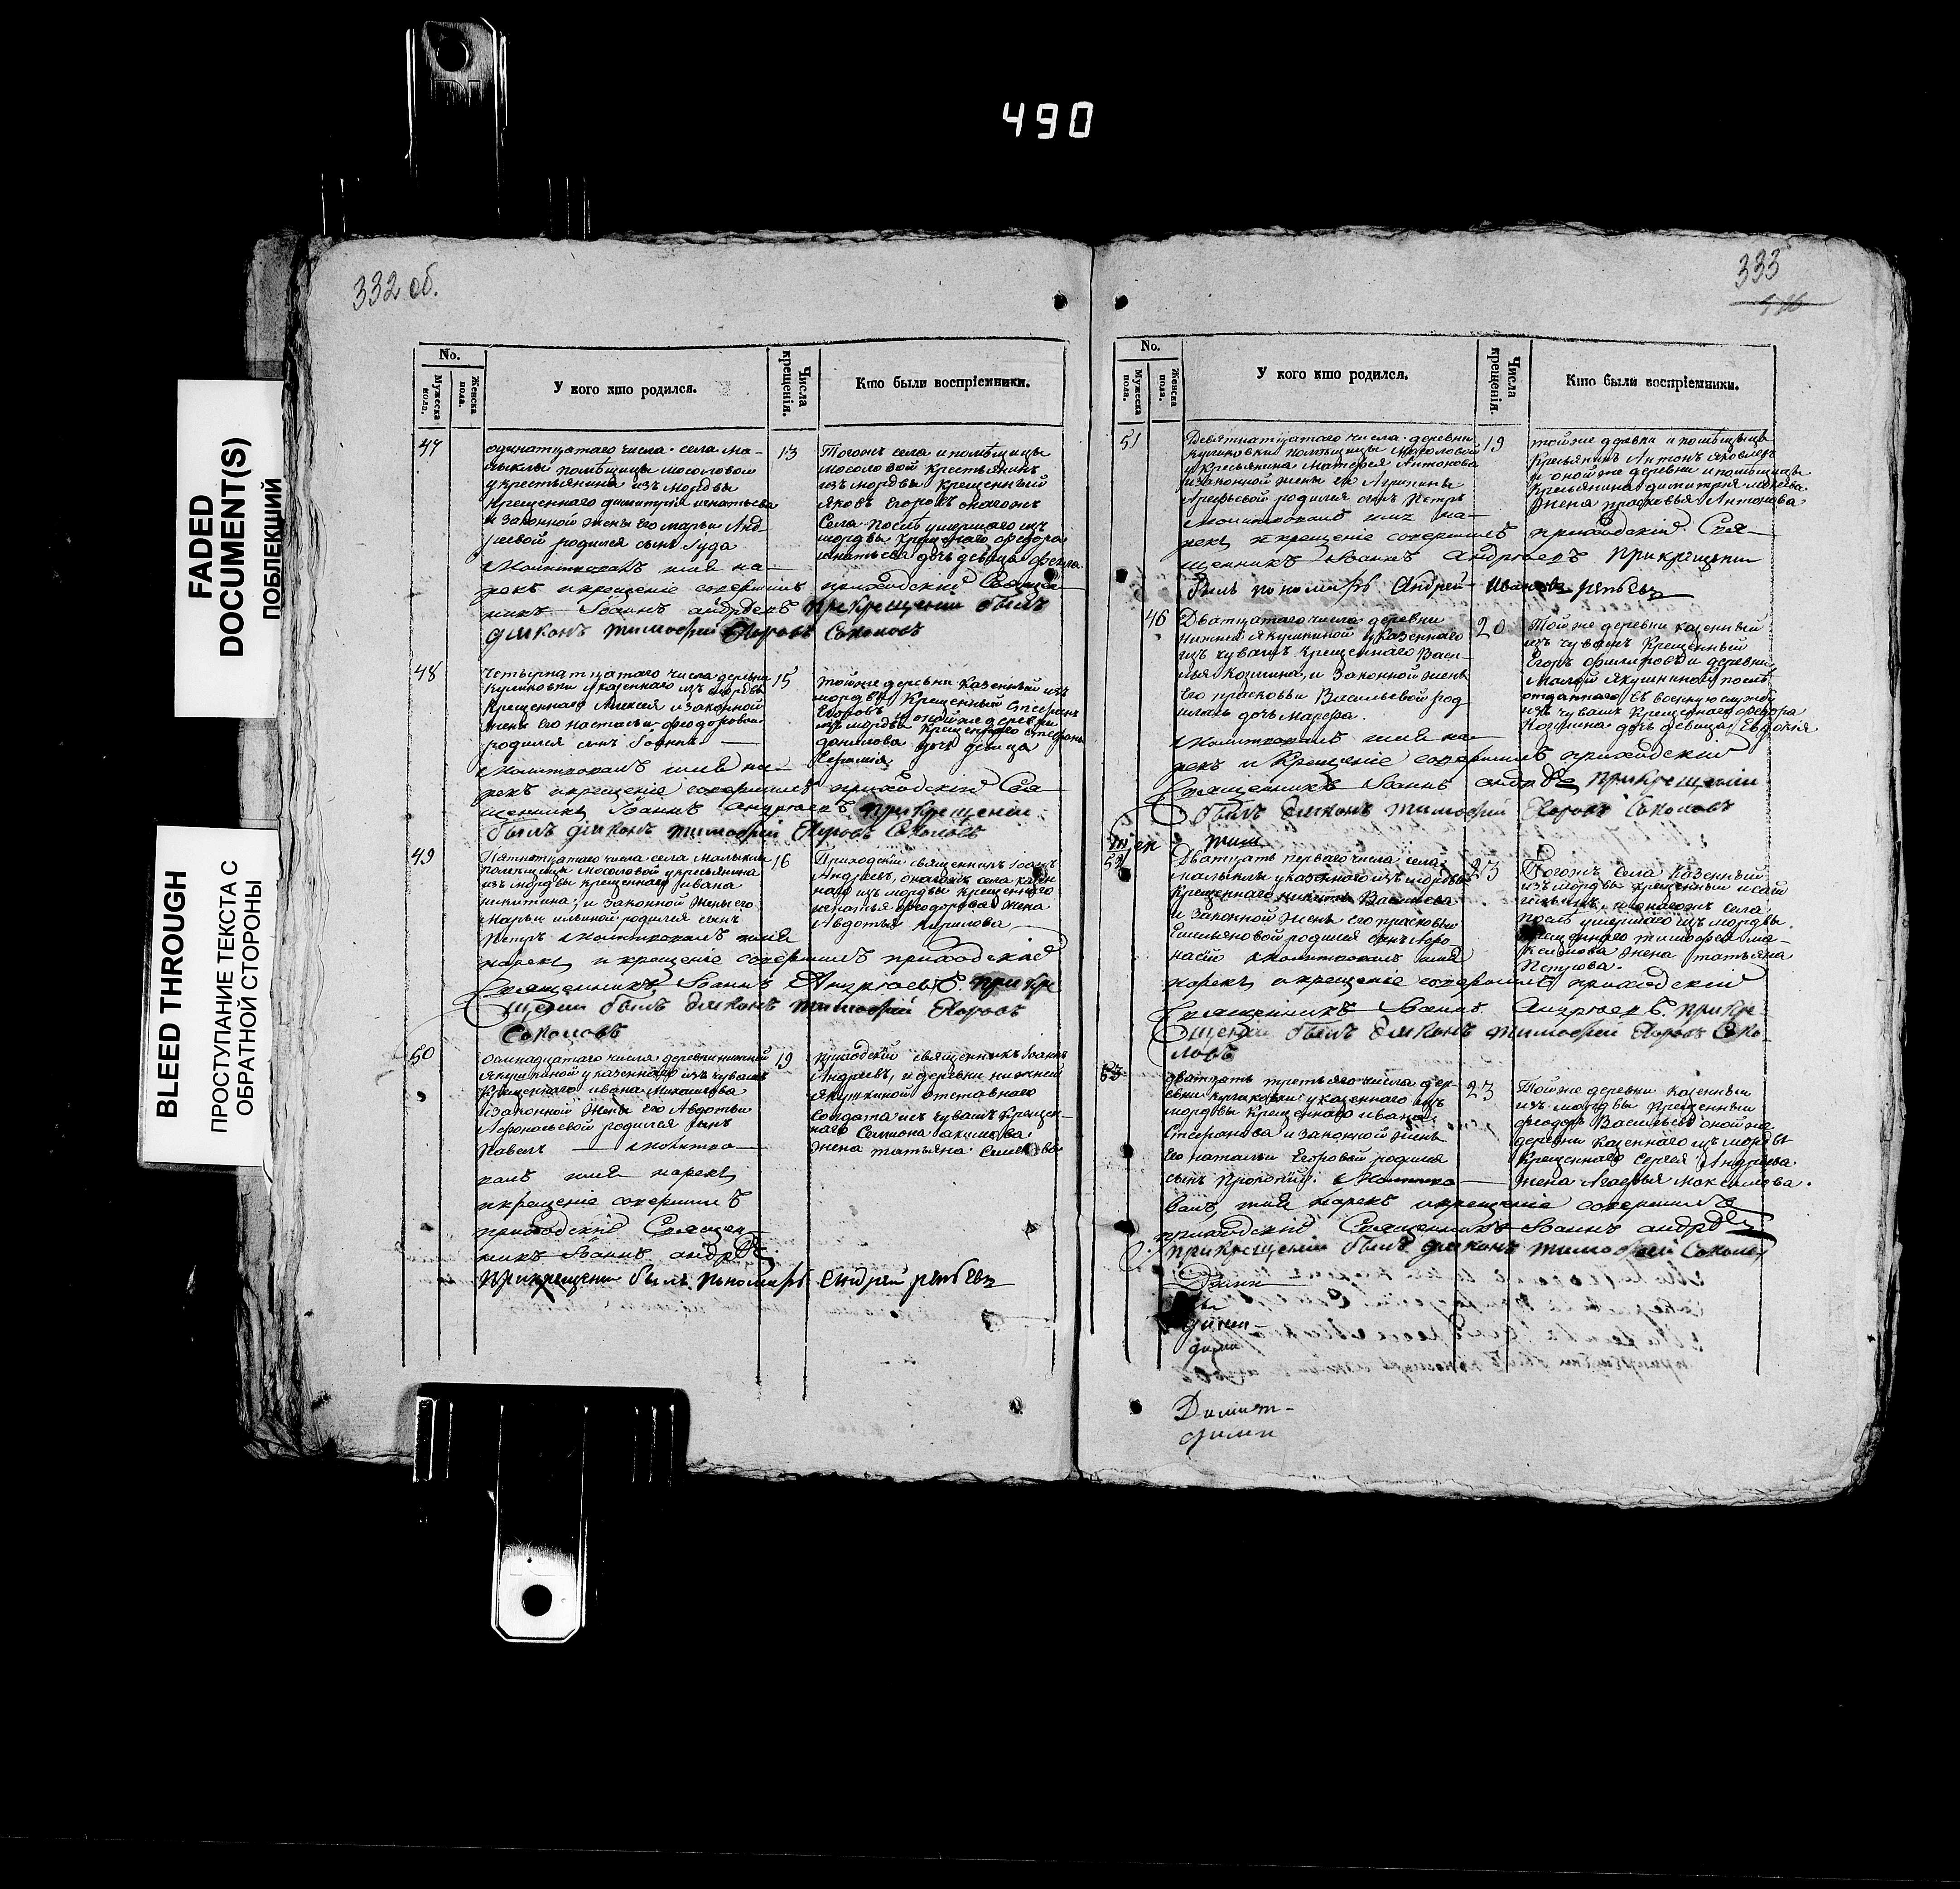 490
FADED
DOCUMENT(S)
ПОБЛЕКШИЙ
BLEED THROUGH
ПРОСТУПАНИЕ ТЕКСТА С
ОБРАТНОЙ СТОРОНЫ
332 об.
No.
Мужеска пола.
Женска пола.
У кого кто родился.
Числа крещенія.
Кто были воспріемники.
47
одинатцатаго числа села Ма-
лыклы помѣщицы мосоловой
у крестьянина изъ мордвы
крещеннаго димитрія игнатьева
и законной жены его марьи Анд-
реевой родился сынъ Іуда
Молитвовалъ имя на-
рекъ и крещеніе совершилъ приходскій Священ-
никъ Іоаннъ андрѣевъ при крещеніи былъ
діяконъ тимофѣй Егоровъ Соколовъ
13
Тогожъ села и помѣщицы
мосоловой крестьянинъ
изъ мордвы крещенный
яковъ Егоровъ онагожъ
Села послѣ умершаго изъ
мордвы крещенаго федора
игнатьева дочь девица фекла
48
четырнатцатаго числа деревни
Куликовки у казеннаго изъ мордвы
Крещеннаго Алексея и законной
жены его настасьи феодоровой
родился сынъ Іоаннъ
Молитвовалъ имя на-
рекъ и крещеніе совершилъ приходскій Свя-
щенникъ Іоаннъ андрѣевъ при крещеніи
былъ діяконъ тимофѣй Егоровъ Соколовъ
15
тойже деревни казенный изъ
мордвы Крещенный Стефанъ
Егоровъ и онойже деревни
изъ мордвы крещеннаго стефана
данилова дочь девица
49
Пятнатцатаго числа села малыклы
помѣщицы Мосоловой у кресьянина
изъ мордвы крещеннаго ивана
никитина, и законной жены его
Марьи ильиной родился сынъ
Петръ Молитвовалъ имя
нарекъ и крещеніе совершилъ приходскій
Священникъ Іоаннъ Андрѣевъ. при кре-
щеніи былъ діяконъ тимофѣй Егоровъ
Соколовъ
16
Приходскій священникъ Іоаннъ
Андреевъ, онагожъ села казен
наго изъ мордвы крещеннаго
игнатья феодорова жена
Авдотья Кирилова
50
осмнадцатаго числа деревни нижней
якушкиной у казеннаго изъ чувашъ
Крещеннаго ивана Михайлова
и законной жены его Авдотьи
Афонасьевой родился сынъ
Павелъ Молитво-
валъ имя нарекъ
и крещеніе совершилъ
приходскій Священ-
никъ Іоаннъ андрѣе
при крещени былъ пономарь андрей репьевъ
19
приходскій священникъ Іоаннъ
Андреевъ, и деревни нижней
якушкиной отставнаго
Солдата изъ чувашъ крещен-
наго Семиона акимова
жена татьяна
333
No.
Мужеска пола.
Женска пола.
У кого кто родился.
Числа крещенія.
Кто были воспріемники.
51
Девятнатцатаго числа деревни
куликовки помѣщицы Мосоловой
у кресьянина Матфея Антонова
и законной жены его Агрипины
Арефьевой родился сынъ Петръ
молитвовалъ имя на-
рекъ и крещеніе совершилъ приходскій Свя-
щенникъ Іоаннъ андрѣевъ при крещеніи
былъ пономарь Андрей Ивановъ репьевъ
19
тойже деревни и помѣщицы
Кресьянинъ Антонъ Яковлевъ
и онойже деревни и помѣщицы
Кресьянина димитрія
жена прасковья Антонова
46
Дватцатаго числа деревни
Нижней якушкиной у казеннаго
изъ чувашъ крещеннаго Васи-
лья Козмина, и законной жены
его прасковьи Васильевой род
илась дочь Марфа.
Молитвовалъ имя на-
рекъ и Крещеніе совершилъ приходскій
Священникъ Іоаннъ андрѣе при крещеніи
былъ діяконъ тимофѣй Егоровъ Соколовъ
20
Тойже деревни казенный
изъ чувашъ Крещенный
Егоръ филиповъ и деревни
Малой якушкиной послѣ
отданнаго въ военную службу
изъ чувашъ Крещеннаго федора
Козмина дочь девица Евдокія
52
Дватцать перваго числа села
малыклы у казеннаго изъ мордвы
Крещеннаго никиты Васильева
и законной жены его прасковьи
Емельяновой родился сынъ Афо-
насій Молитвовалъ имя
нарекъ и крещеніе совершилъ приходскій
Священникъ Іоаннъ Андрѣевъ. при кре-
щеніи былъ діяконъ тимофѣй Егоровъ Соко-
ловъ
23
Тогожъ села казенный
изъ мордвы крещенный исай
и онагожъ села
послѣ умершаго изъ мордвы
крещеннаго тимофея ма-
ксимова жена татьяна
Петрова.
53
дватцать третьяго числа дер-
евни куликовки у казеннаго изъ
мордвы Крещеннаго ивана
Стефанова и законной жены
его натальи Егоровой родился
сынъ Прокопій. Молитво-
валъ имя нарекъ и крещеніе совершилъ
приходскій Священникъ Іоаннъ андрѣе
при крещеніи былъ діяконъ тимофѣй Соколовъ
23
Тойже деревни казенный
изъ мордвы крещенный
феодоръ Васильевъ онойже
деревни казеннаго изъ мордвы
Крещеннаго сергея Андреева
жена Агафья Максимова.